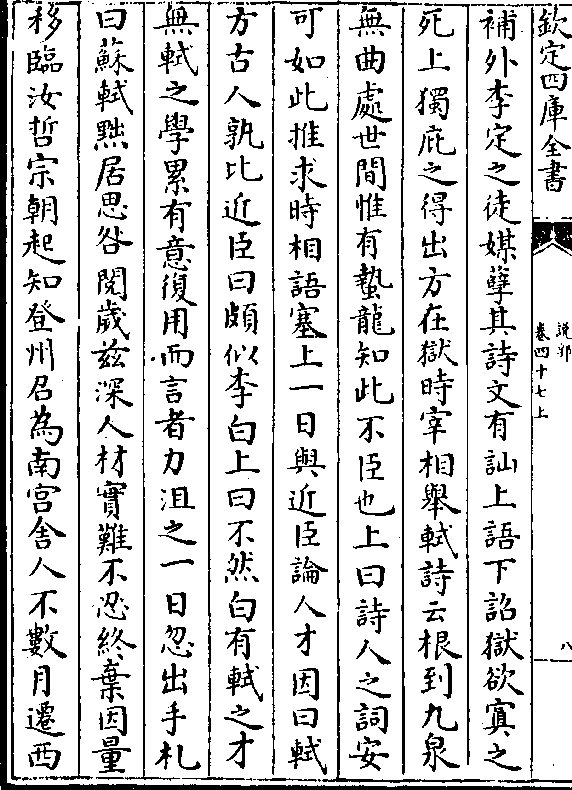 欽定四庫全書
說郛
卷四十七上
八
補外李定之徒媒孽其詩文有訕上語下詔獄欲寘之
死上獨庇之得出方在獄時宰相舉軾詩云根到九泉
無曲處世間惟有蟄龍知此不臣也上曰詩人之詞安
可如此推求時相語塞上一日與近臣論人才因曰軾
方古人孰比近臣曰頗似李白上曰不然白有軾之才
無軾之學累有意復用而言者力沮之一日忽出手札
曰蘇軾黜居思咎閱歲兹深人材實難不忍終棄因量
移臨汝哲宗朝起知登州召為南宫舍人不數月遷西